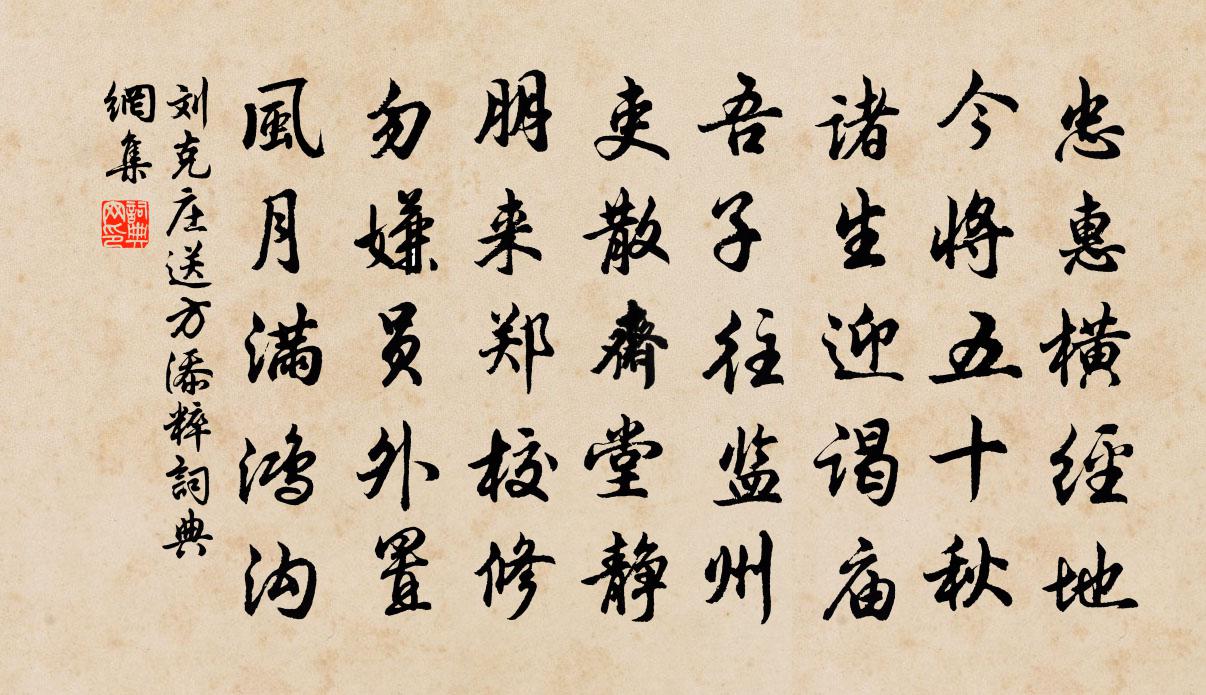 忠惠橫經地
今將五十秋
诸生迎谒庙
吾子往监州
吏散齋堂静
朋来郑校修
勿嫌员外置
風月满鸿沟
刘克庄送方添粹詞典
網集
詞典網印